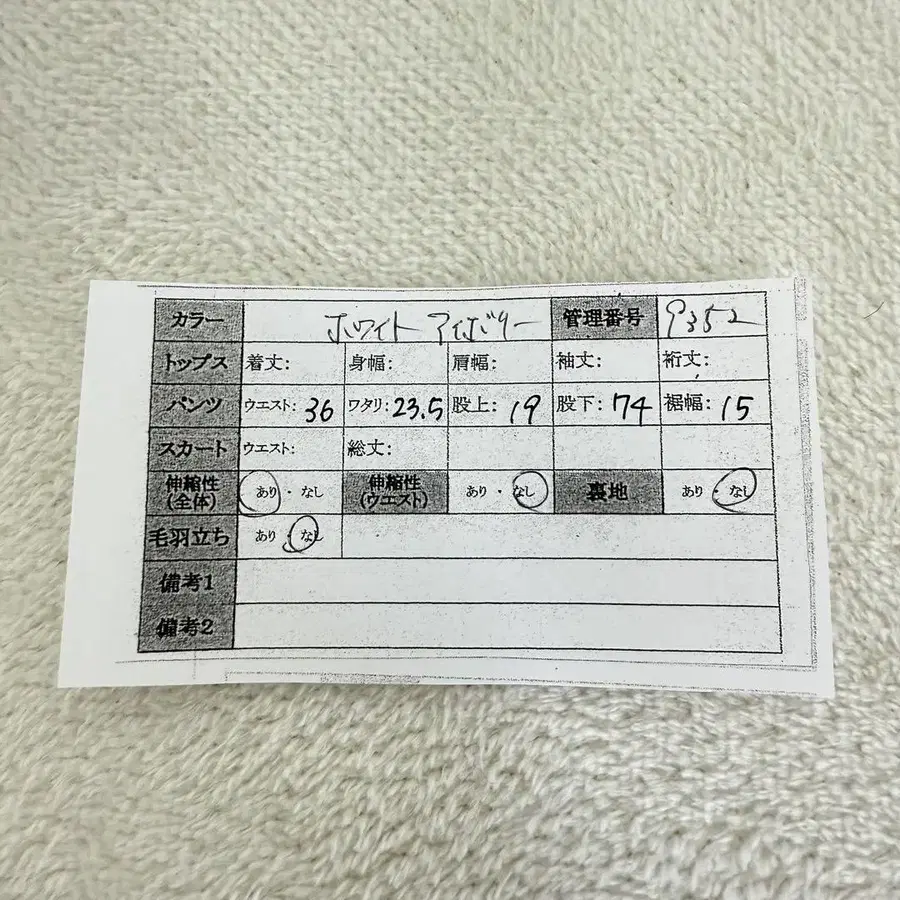 カラー ホワイト アイボリー 管理番号 9352
トップス 着丈: 身幅: 肩幅: 袖丈: 裄丈:
パンツ ウエスト: 36 ワタリ: 23.5 股上: 19 股下: 74 裾幅: 15
スカート ウエスト: 総丈:
伸縮性(全体) あり・なし 伸縮性(ウエスト) あり・なし 裏地 あり・なし
毛羽立ち あり・なし
備考1
備考2